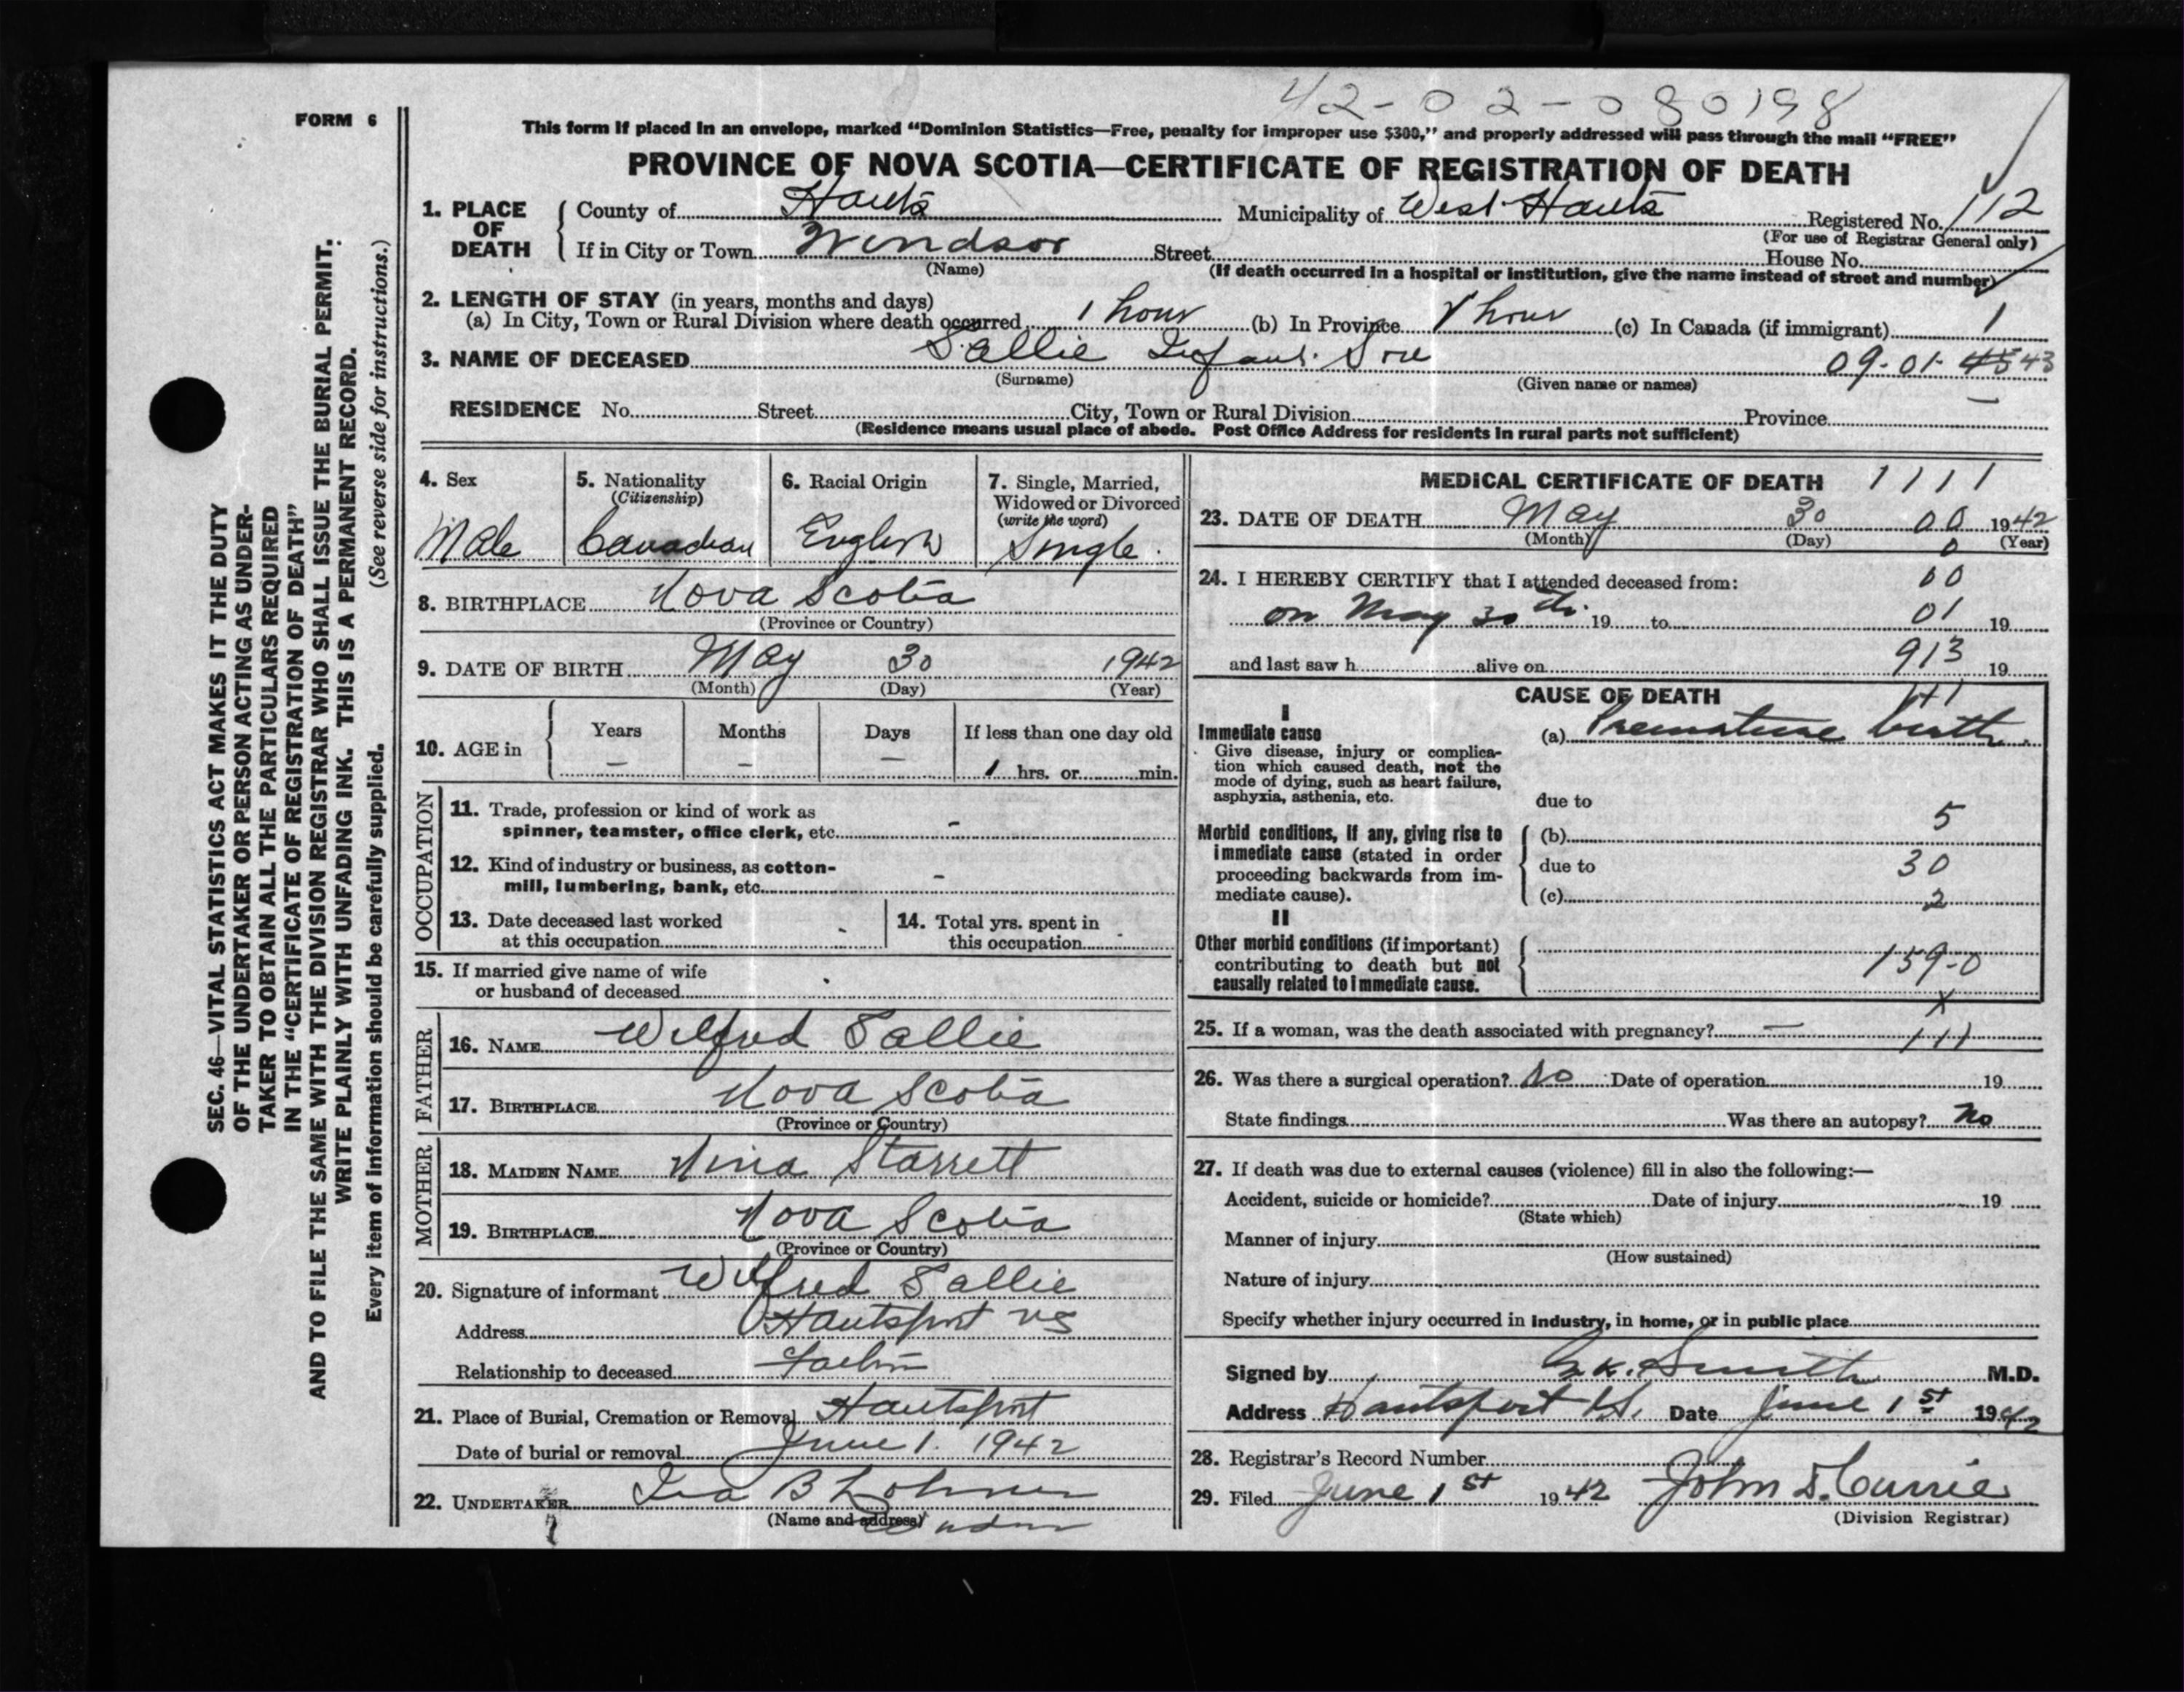 42-02-080198
FORM 6
This form if placed in an envelope, marked “Dominion Statistics—Free, penalty for improper use $300,” and properly addressed will pass through the mail “FREE”
PROVINCE OF NOVA SCOTIA—CERTIFICATE OF REGISTRATION OF DEATH
1. PLACE OF DEATH { County of Hants Municipality of West Hants Registered No. 112
(For use of Registrar General only)
If in City or Town Windsor Street House No.
(Name) (If death occurred in a hospital or institution, give the name instead of street and number)
2. LENGTH OF STAY (in years, months and days)
(a) In City, Town or Rural Division where death occurred 1 hour (b) In Province 1 hour (c) In Canada (if immigrant) 1
3. NAME OF DECEASED Sallie Infant Son 09-01-45 43
(Surname) (Given name or names)
RESIDENCE No. Street City, Town or Rural Division Province
(Residence means usual place of abode. Post Office Address for residents in rural parts not sufficient)
4. Sex Male
5. Nationality (Citizenship) Canadian
6. Racial Origin English
7. Single, Married, Widowed or Divorced (write the word) Single.
8. BIRTHPLACE Nova Scotia
(Province or Country)
9. DATE OF BIRTH May 30 1942
(Month) (Day) (Year)
10. AGE in { Years Months Days If less than one day old
– – – 1 hrs. or min.
OCCUPATION
11. Trade, profession or kind of work as
spinner, teamster, office clerk, etc. -
12. Kind of industry or business, as cotton-
mill, lumbering, bank, etc. -
13. Date deceased last worked
at this occupation -
14. Total yrs. spent in
this occupation -
15. If married give name of wife
or husband of deceased
FATHER
16. NAME Wilfred Sallie
17. BIRTHPLACE Nova Scotia
(Province or Country)
MOTHER
18. MAIDEN NAME Nina Starrett
19. BIRTHPLACE Nova Scotia
(Province or Country)
20. Signature of informant Wilfred Sallie
Address Hantsport NS
Relationship to deceased Father
21. Place of Burial, Cremation or Removal Hantsport
Date of burial or removal June 1. 1942
22. UNDERTAKER Ira B
(Name and address) Windsor
MEDICAL CERTIFICATE OF DEATH 1111
23. DATE OF DEATH May 30 00 1942
(Month) (Day) 0 (Year)
24. I HEREBY CERTIFY that I attended deceased from: 00
on May 30th. 19 to 01 19
and last saw h alive on 913 19
CAUSE OF DEATH
I
Immediate cause
Give disease, injury or complica-
tion which caused death, not the
mode of dying, such as heart failure,
asphyxia, asthenia, etc.
(a) Premature birth.
due to
Morbid conditions, if any, giving rise to
immediate cause (stated in order
proceeding backwards from im-
mediate cause).
(b) 5
due to 30
(c) 2
II
Other morbid conditions (if important)
contributing to death but not
causally related to immediate cause.
159-0
X
25. If a woman, was the death associated with pregnancy? — 111
26. Was there a surgical operation? No Date of operation 19
State findings Was there an autopsy? No
27. If death was due to external causes (violence) fill in also the following:—
Accident, suicide or homicide? Date of injury 19
(State which)
Manner of injury
(How sustained)
Nature of injury
Specify whether injury occurred in industry, in home, or in public place
Signed by K. Smith M.D.
Address Hantsport N.S. Date June 1st 1942
28. Registrar's Record Number
29. Filed June 1st 1942 John D. Currie
(Division Registrar)
SEC. 46—VITAL STATISTICS ACT MAKES IT THE DUTY
OF THE UNDERTAKER OR PERSON ACTING AS UNDER-
TAKER TO OBTAIN ALL THE PARTICULARS REQUIRED
IN THE “CERTIFICATE OF REGISTRATION OF DEATH”
AND TO FILE THE SAME WITH THE DIVISION REGISTRAR WHO SHALL ISSUE THE BURIAL PERMIT.
WRITE PLAINLY WITH UNFADING INK. THIS IS A PERMANENT RECORD.
Every item of information should be carefully supplied. (See reverse side for instructions.)